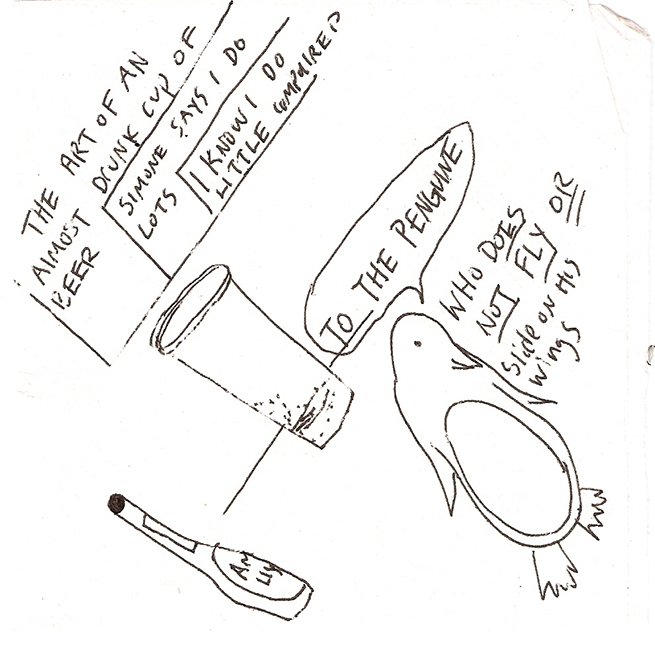 THE ART OF AN
ALMOST DRUNK CUP OF
BEER
SIMONE SAYS I DO
LOTS
I KNOW I DO
LITTLE COMPAIRED
TO THE PENGUINE
WHO DOES
NOT FLY OR
Slide ON HIS
wings